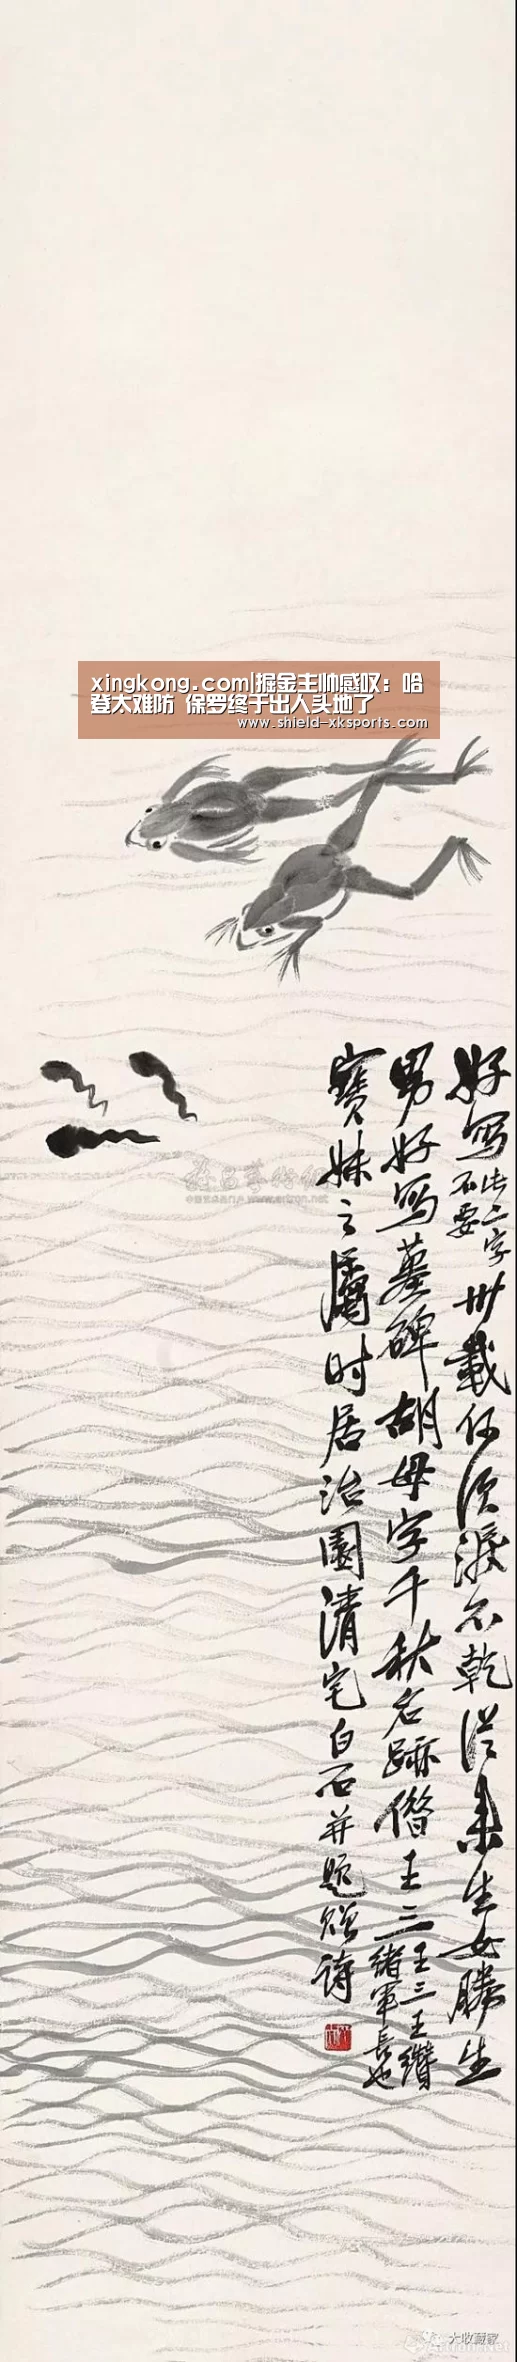 xingkong.com|掘金主帅感叹：哈
登太难防 保罗终于出人头地了
www.shield-xksports.com
好写
此二字
不要
卅载你须泪不乾从来生女胜生
男好写墓碑胡母字千秋名迹借王三
王三王缵
绪军长也
宝妹之属时居治园清宅白石并题赠诗
www.artron.net
大收藏家